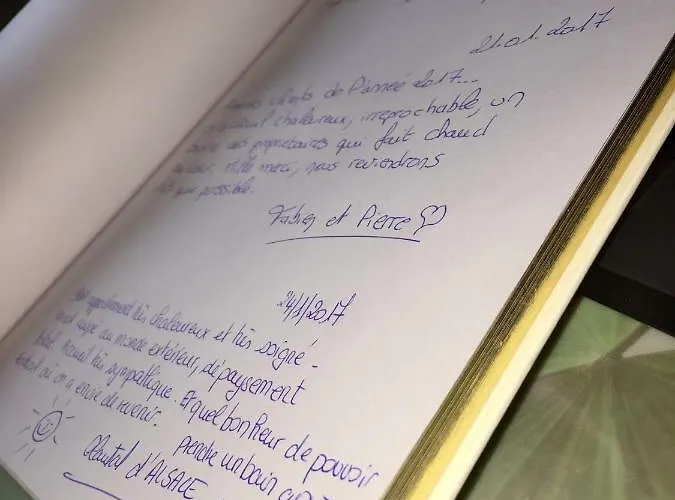 21.01.2017
clients de l'année 2017...
chaleureux, irréprochable, un
des propriétaires qui fait chaud
mille merci, nous reviendrons
que possible.
Fabien et Pierre
24/1/2017
appartement très chaleureux et très soigné-
coupé au monde extérieur, dépaysement
Accueil très sympathique. Et quel bonheur de pouvoir
où on a envie de revenir.
prendre un bain
Chantal d'ALSACE